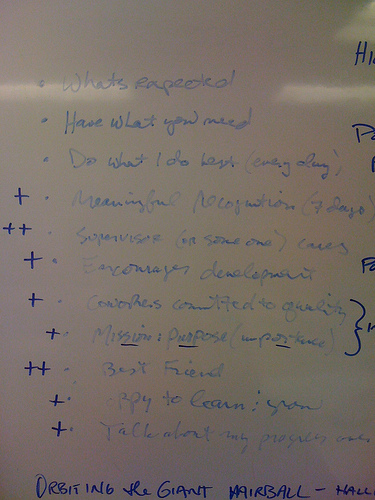 HI
• Whats expected
• Have what you need
• Do what I do best (every day)
+ • Meaningful Recognition (7 days)
++ • Supervisor (or someone) cares
+ • Encourages development
+ • Coworkers committed to quality
+ • Mission: purpose (importance)
++ • Best Friend
+ • to learn : grow
+ • Talk about my progress
ORBITING the GIANT HAIRBALL -